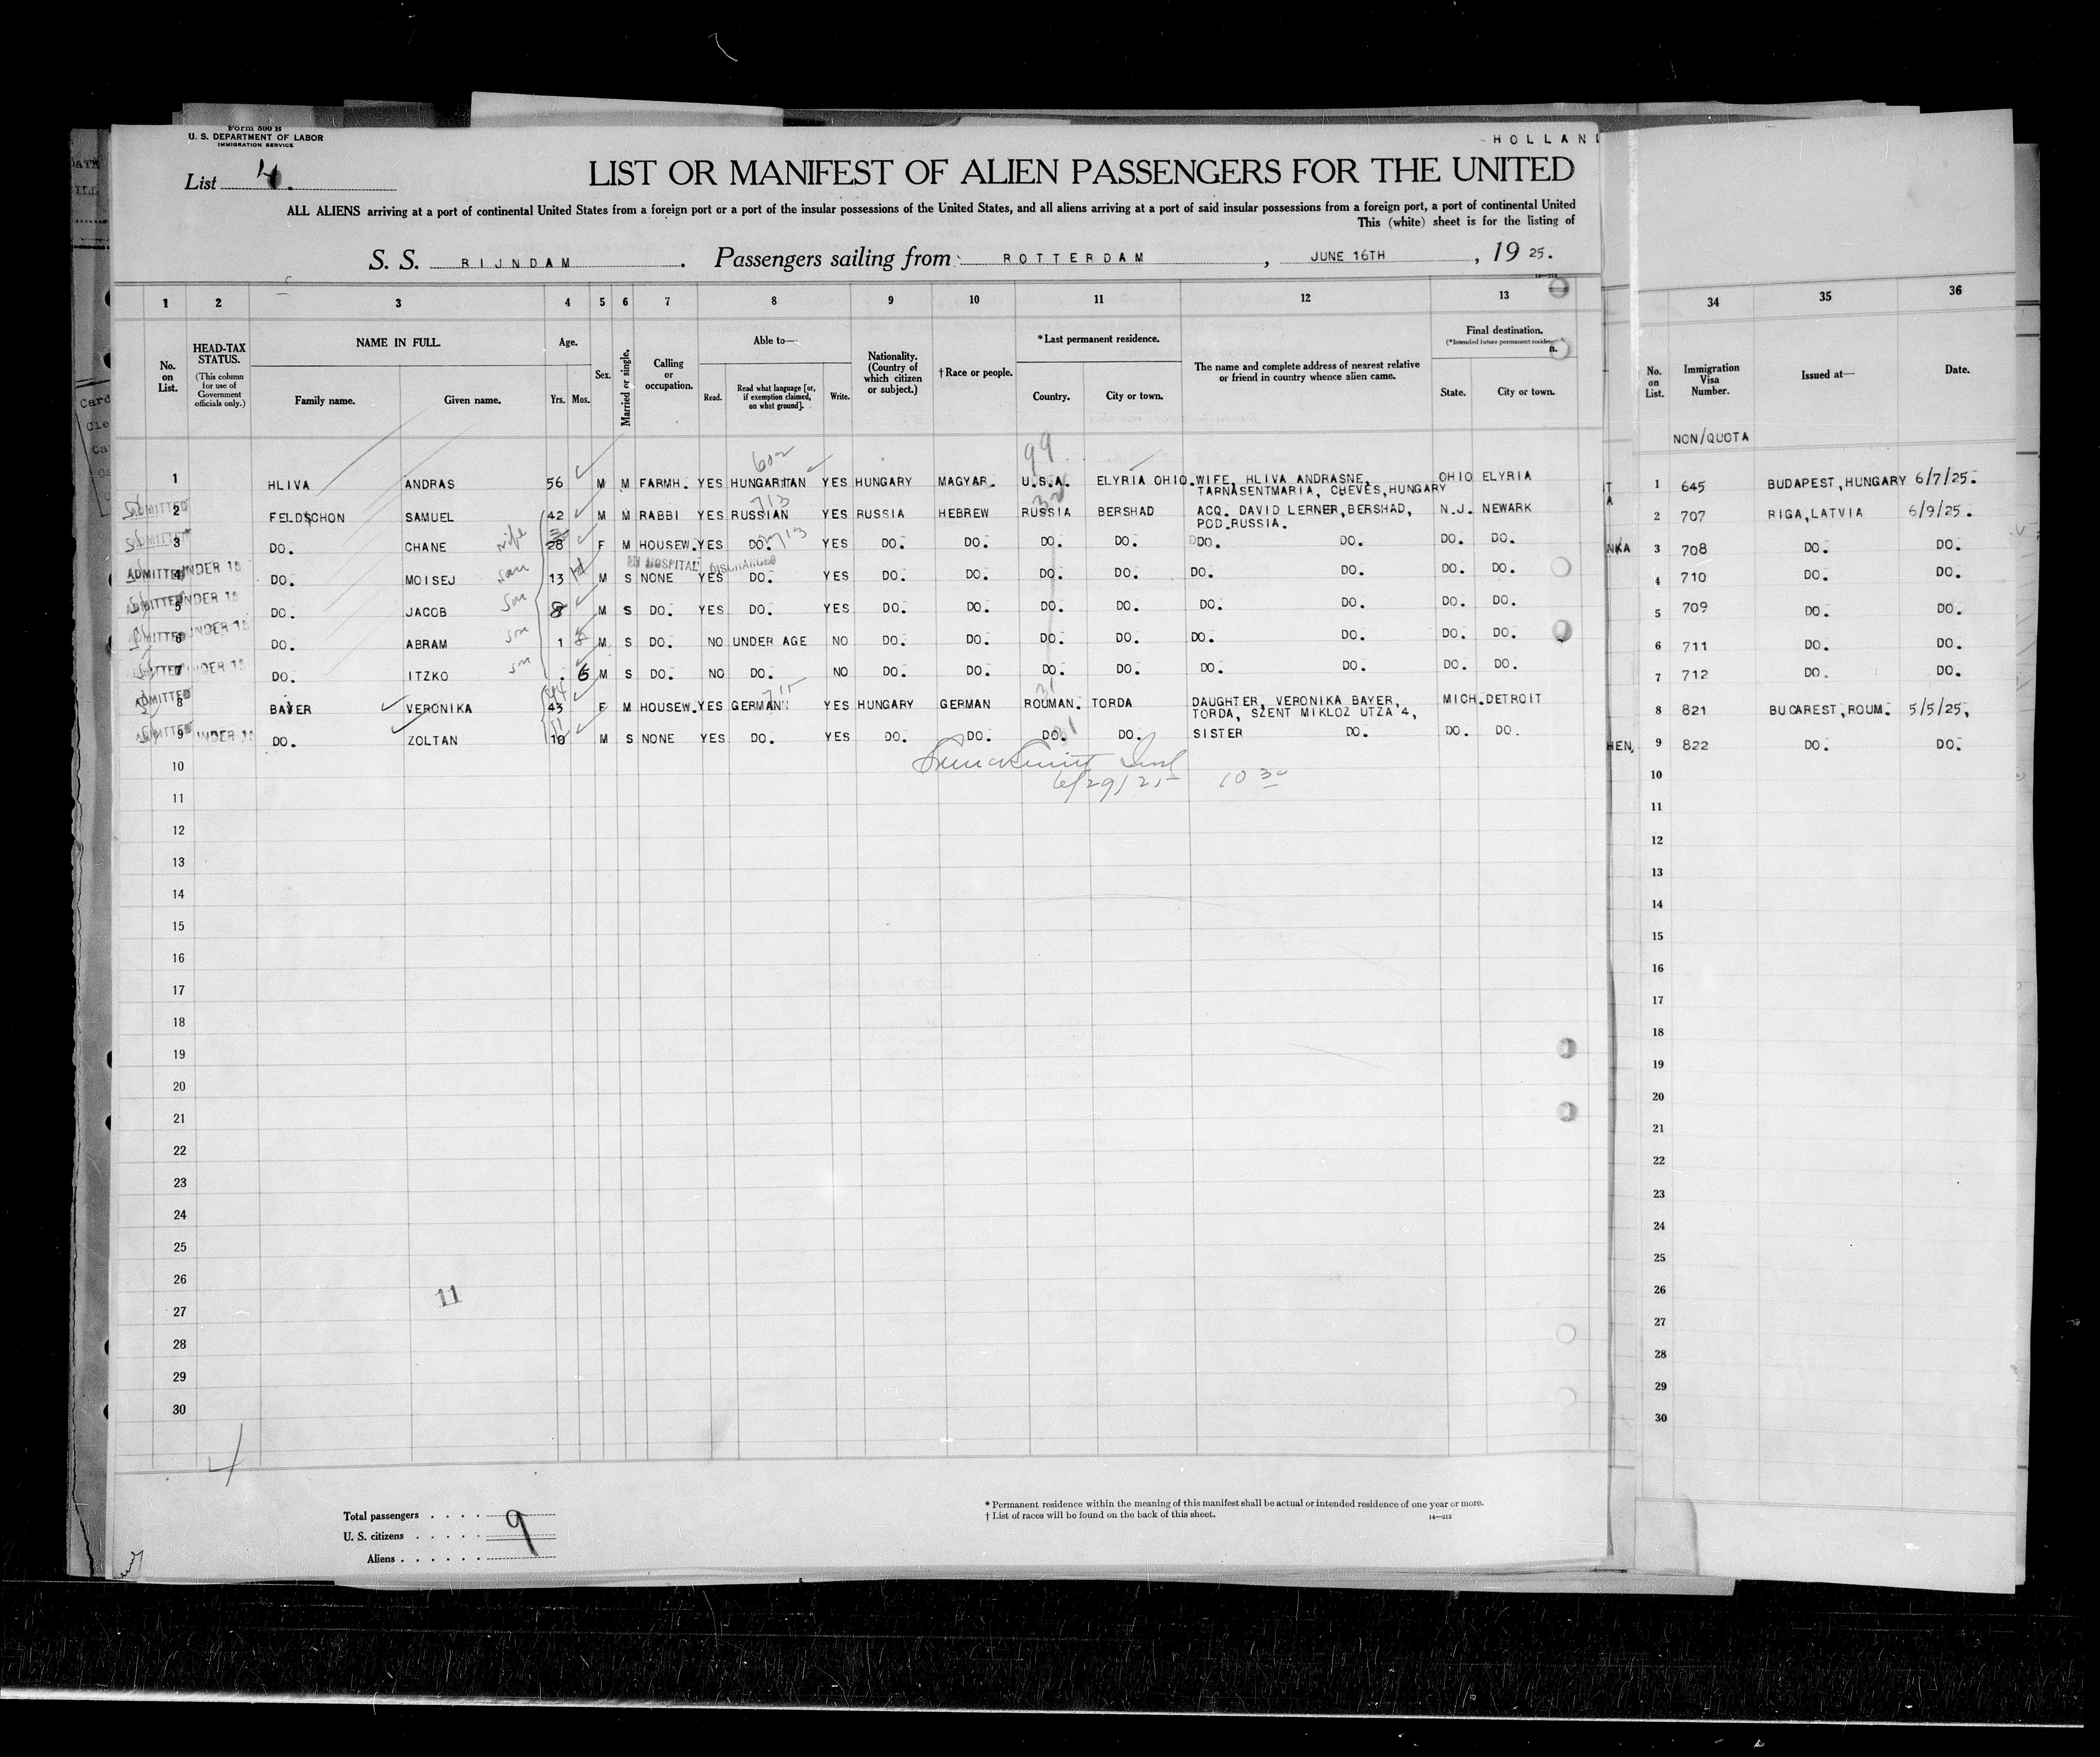 Form 500 B
U. S. DEPARTMENT OF LABOR
IMMIGRATION SERVICE
HOLLAND
List 4.
LIST OR MANIFEST OF ALIEN PASSENGERS FOR THE UNITED
ALL ALIENS arriving at a port of continental United States from a foreign port or a port of the insular possessions of the United States, and all aliens arriving at a port of said insular possessions from a foreign port, a port of continental United
This (white) sheet is for the listing of
S. S. RIJNDAM. Passengers sailing from ROTTERDAM, JUNE 16TH, 19 25.
1 2 3 4 5 6 7 8 9 10 11 12 13 34 35 36
No. on List.
HEAD-TAX STATUS.
(This column for use of Government officials only.)
NAME IN FULL.
Family name. Given name.
Age.
Yrs. Mos.
Sex.
Married or single.
Calling or occupation.
Able to—
Read. Read what language [or, if exemption claimed, on what ground]. Write.
Nationality. (Country of which citizen or subject.)
†Race or people.
*Last permanent residence.
Country. City or town.
The name and complete address of nearest relative or friend in country whence alien came.
Final destination.
(*Intended future permanent residence.)
State. City or town.
No. on List.
Immigration Visa Number.
Issued at—
Date.
NON/QUOTA
602 99
1 HLIVA ANDRAS 56 M M FARMH. YES HUNGARIAN YES HUNGARY MAGYAR. U.S.A. ELYRIA OHIO. WIFE, HLIVA ANDRASNE, OHIO ELYRIA 1 645 BUDAPEST,HUNGARY 6/7/25.
TARNASENTMARIA, CHEVES,HUNGARY
ADMITTED 2 FELDSCHON SAMUEL 42 M M RABBI YES RUSSIAN 713 YES RUSSIA HEBREW RUSSIA BERSHAD ACQ. DAVID LERNER,BERSHAD, N.J. NEWARK 2 707 RIGA,LATVIA 6/9/25.
POD.RUSSIA.
ADMITTED 3 DO. CHANE wife 28 F M HOUSEW. YES DO. 713 YES DO. DO. DO. DO. DO. DO. DO. DO. 3 708 DO. DO.
IN HOSPITAL DISCHARGED
ADMITTED UNDER 16 4 DO. MOISEJ son 13 M S NONE YES DO. YES DO. DO. DO. DO. DO. DO. DO. DO. 4 710 DO. DO.
ADMITTED UNDER 16 5 DO. JACOB son 8 M S DO. YES DO. YES DO. DO. DO. DO. DO. DO. DO. DO. 5 709 DO. DO.
ADMITTED UNDER 16 6 DO. ABRAM son 1 M S DO. NO UNDER AGE NO DO. DO. DO. DO. DO. DO. DO. DO. 6 711 DO. DO.
ADMITTED UNDER 16 7 DO. ITZKO son . 6 M S DO. NO DO. NO DO. DO. DO. DO. DO. DO. DO. DO. 7 712 DO. DO.
ADMITTED 8 BAYER VERONIKA 44 43 F M HOUSEW. YES GERMAN 715 YES HUNGARY GERMAN ROUMAN. TORDA DAUGHTER, VERONIKA BAYER, MICH.DETROIT 8 821 BUCAREST,ROUM. 5/5/25,
TORDA, SZENT MIKLOZ UTZA 4,
ADMITTED UNDER 16 9 DO. ZOLTAN 11 10 M S NONE YES DO. YES DO. DO. DO. DO. SISTER DO. DO. DO. 9 822 DO. DO.
6/29/25 10 30
10 10
11 11
12 12
13 13
14 14
15 15
16 16
17 17
18 18
19 19
20 20
21 21
22 22
23 23
24 24
25 25
26 26
11
27 27
28 28
29 29
30 30
Total passengers
U. S. citizens 9
Aliens
* Permanent residence within the meaning of this manifest shall be actual or intended residence of one year or more.
† List of races will be found on the back of this sheet.
14—213